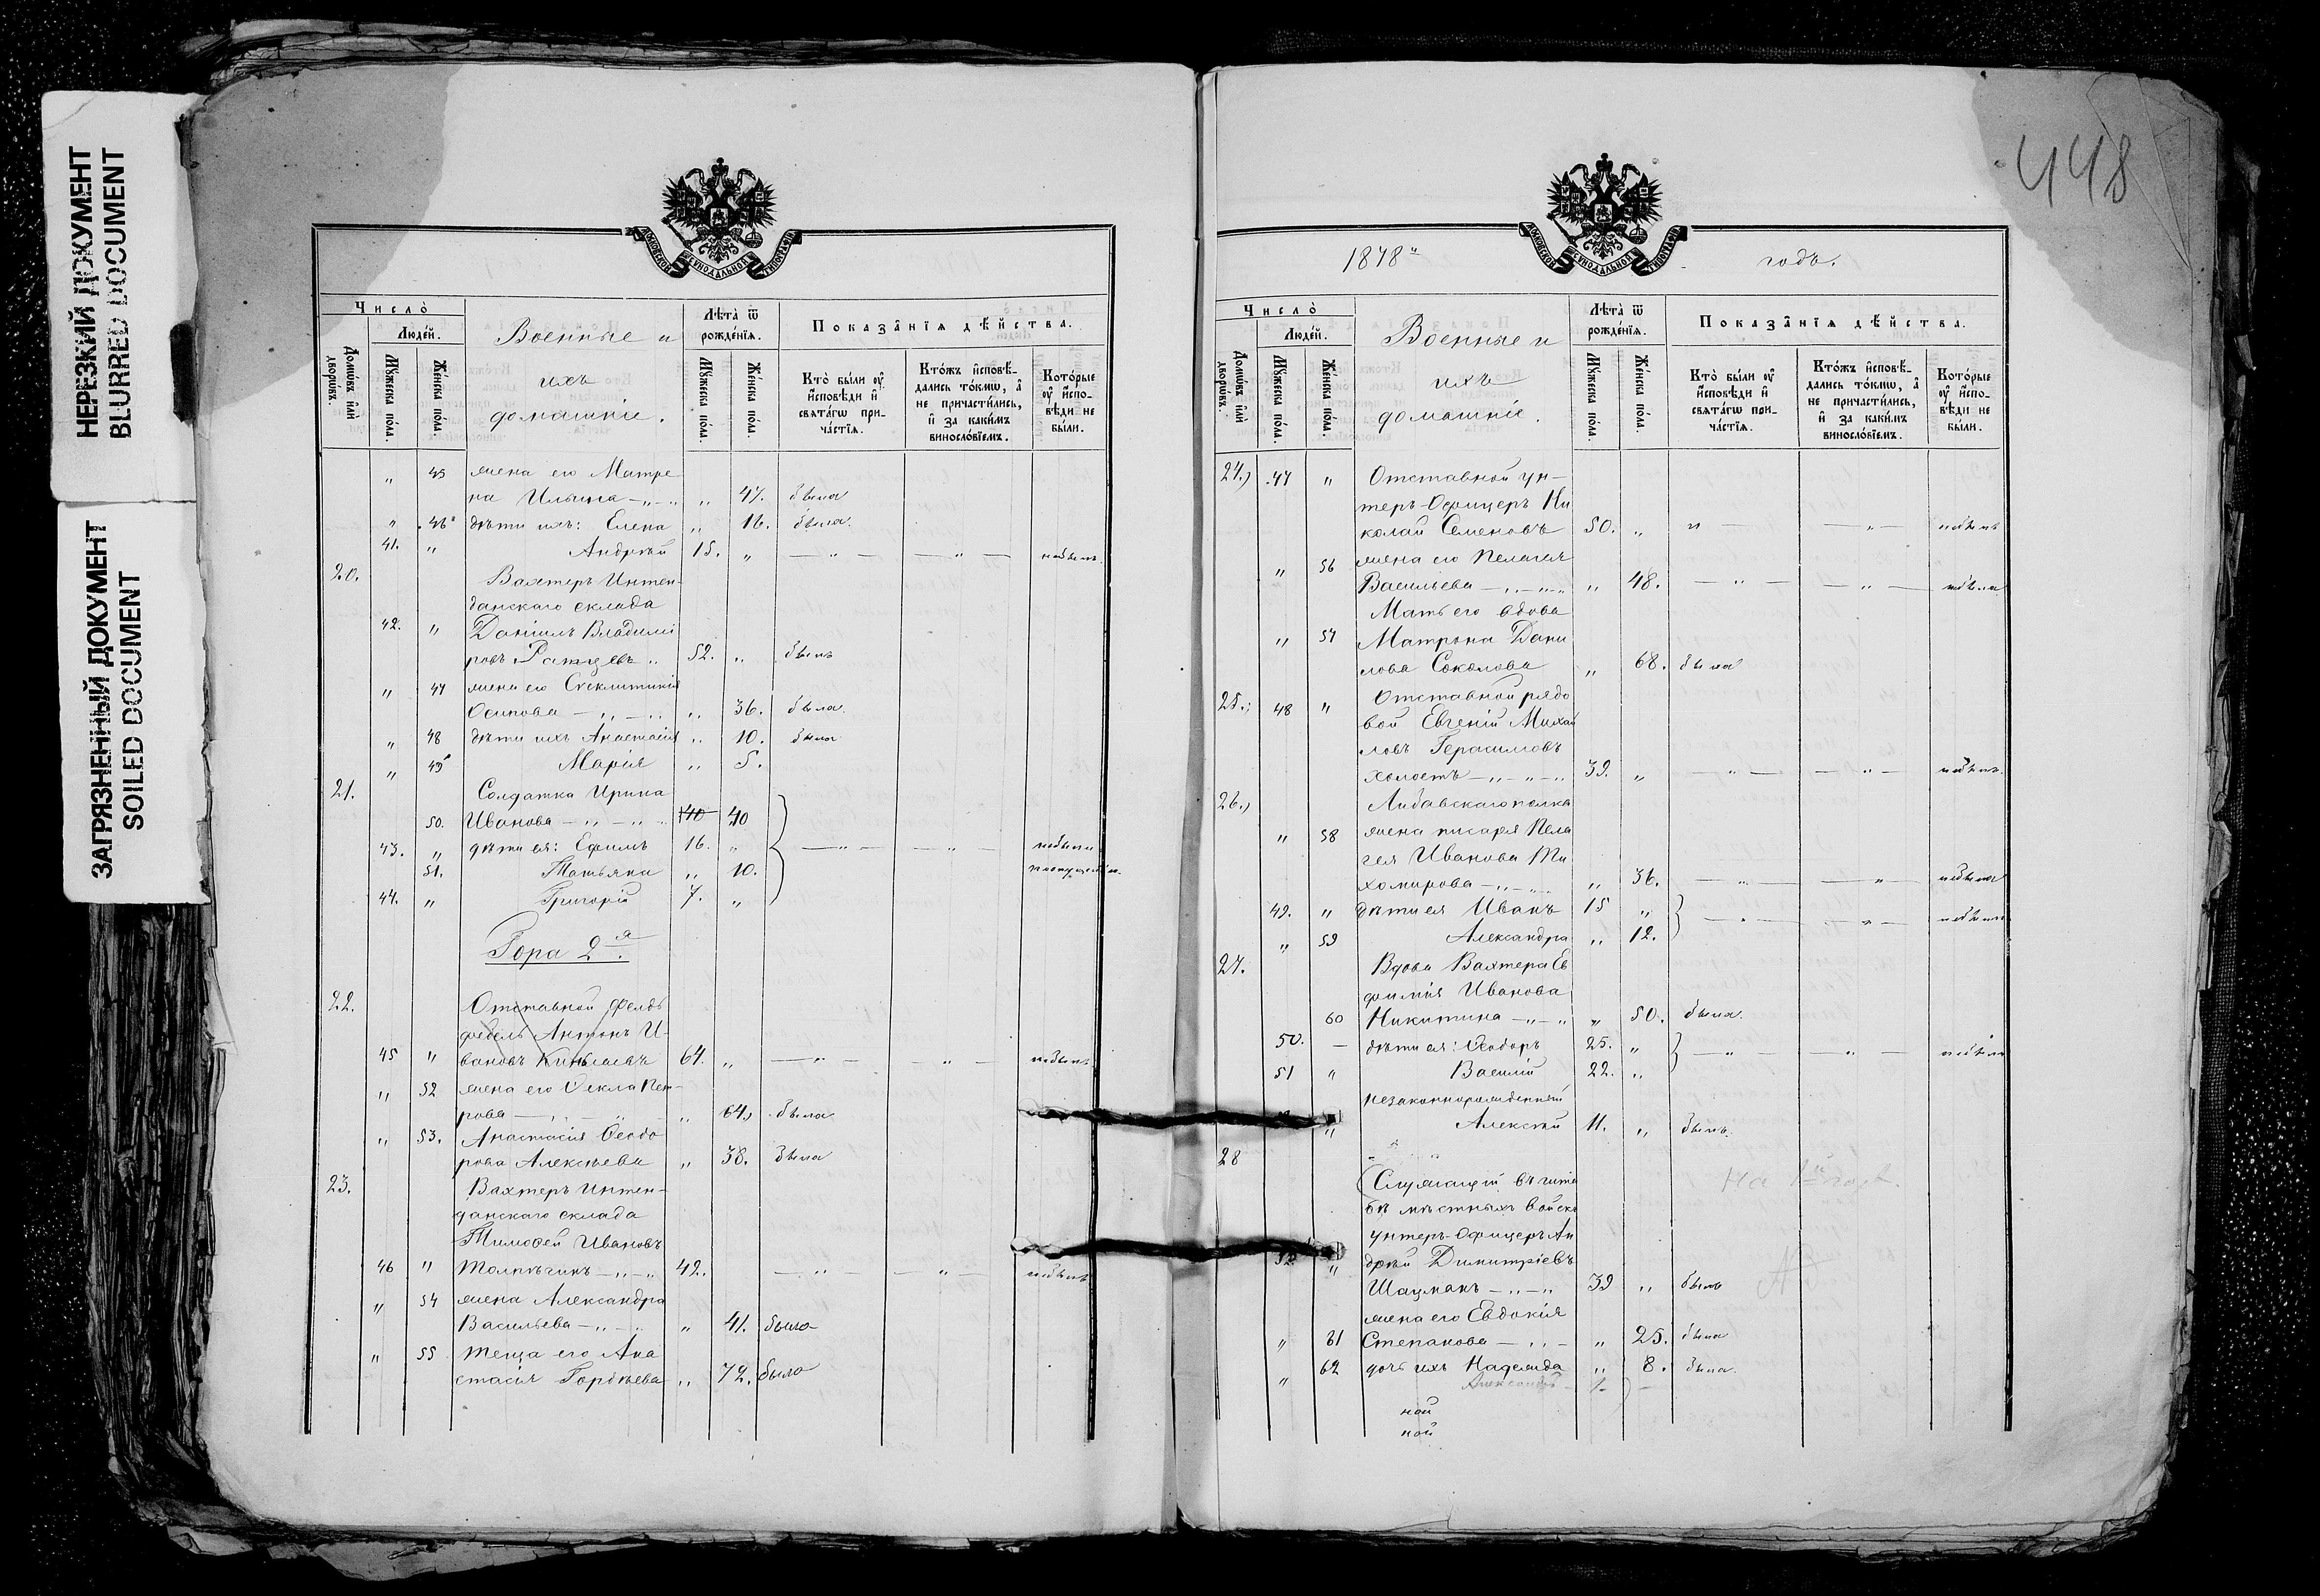 НЕРЕЗКИЙ ДОКУМЕНТ
BLURRED DOCUMENT
ЗАГРЯЗНЕННЫЙ ДОКУМЕНТ
SOILED DOCUMENT
МОСКОВСКОЙ СѴНОДАЛЬНОЙ ТИПОГРАФІИ
Число̀
Люде́й.
Домѡ́въ и҆лѝ дворѡ́въ.
Мꙋ́жеска по́ла.
Же́нска по́ла.
Военные и
ихъ
домашніе.
Лѣ́та ѿ рожде́нїѧ.
Мꙋ́жеска по́ла.
Же́нска по́ла.
Показа̑нїѧ дѣ́йства.
Кто̀ бы́ли ᲂу҆ и҆сповѣ́ди и҆ свѧта́гѡ прича́стїѧ.
Кто́жъ и҆сповѣ́дались то́кмѡ, а҆ не причасти́лись, и҆ за каки́мъ винослóвїемъ.
Кото́рые ᲂу҆ и҆сповѣ́ди не бы́ли.
„ 45 жена его Матре
на Ильина — „ — „ „ 47. была
„ 46 дѣти ихъ: Елена „ 16. была.
41. „ Андрей 15. „ — „ — — „ — небылъ.
20. Вахтеръ Интен-
данскаго склада
42. „ Даніилъ Владимі
ровъ „ 52. „ былъ
„ 47 жена его
Осипова — „ — „ „ 36. была.
„ 48 дѣти ихъ Анастасія „ 10. была
„ 49 Марія „ 5.
21. Солдатка Ирина
50. Иванова — „ — „ 40 40
43. „ дѣти ея: Ефимъ 16. „ — „ — — „ — небыли
51. Татьяна „ 10.
44. „ Григорій 7. „
Гора 2я.
22. Отставной фельд
фебель Антонъ И-
45 „ вановъ 64. „ — „ — „ небылъ
„ 52 жена его Ѳекла Пет-
рова — „ — „ 64. была
„ 53. Анастасія Ѳеодо
рова Алексѣева „ 38. была
23. Вахтеръ Интен-
данскаго склада
Тимоѳей Ивановъ
46 „ — „ — „ 42. — „ — — „ — небылъ
„ 54 жена Александра
Васильева — „ — „ „ 41. была
„ 55 теща его Ана
стасія Горбѣева „ 72. была
448
МОСКОВСКОЙ СѴНОДАЛЬНОЙ ТИПОГРАФІИ
1878й годъ.
Число̀
Люде́й.
Домѡ́въ и҆лѝ дворѡ́въ.
Мꙋ́жеска по́ла.
Же́нска по́ла.
Военные и
ихъ
домашніе.
Лѣ́та ѿ рожде́нїѧ.
Мꙋ́жеска по́ла.
Же́нска по́ла.
Показа̑нїѧ дѣ́йства.
Кто̀ бы́ли ᲂу҆ и҆сповѣ́ди и҆ свѧта́гѡ прича́стїѧ.
Кто́жъ и҆сповѣ́дались то́кмѡ, а҆ не причасти́лись, и҆ за каки́мъ винослóвїемъ.
Кото́рые ᲂу҆ и҆сповѣ́ди не бы́ли.
24.) 47 „ Отставной ун-
теръ-Офицеръ Ни
колай Семеновъ 50. „ „ — — „ — небылъ
„ 56 жена его Пелагея
Васильева — „ — „ „ „ 48. — „ — — „ — небыла
Мать его вдова
„ 57 Матрона Дани
лова Соколова „ 68. была
25. 48 „ Отставной рядо
вой Евгеній Михай
ловъ Герасимовъ
холостъ — „ — „ 39. „ — „ — — „ — небылъ.
26.) Либавскаго полка
„ 58 жена писаря Пела
гея Иванова Ти
хомирова — „ — „ „ 36. — „ — — „ — небыла
49. „ дѣти ея Иванъ 15 „ — „ — — „ — небыли
„ 59 Александра „ 12.
27. Вдова Вахтера Ев
фимія Иванова
60 Никитина — „ — „ „ 50. была.
50. — дѣти ея: Ѳеодоръ 25. „ — „ — — „ — небыли
51 „ Василій 22. „
незаконнорожденный
„ Алексѣй 11. „ былъ.
28 На 1й горѣ.
Служащій въ шта
бѣ мѣстныхъ войскъ
унтеръ-Офицеръ Ан
52 „ дрей Димитріевъ
Шацманъ — „ — „ 39 „ былъ
жена его Евдокія
„ 61 Степанова — „ — „ 25. была
„ 62 дочь ихъ Надежда „ 8. была.
Александръ
ной
ной